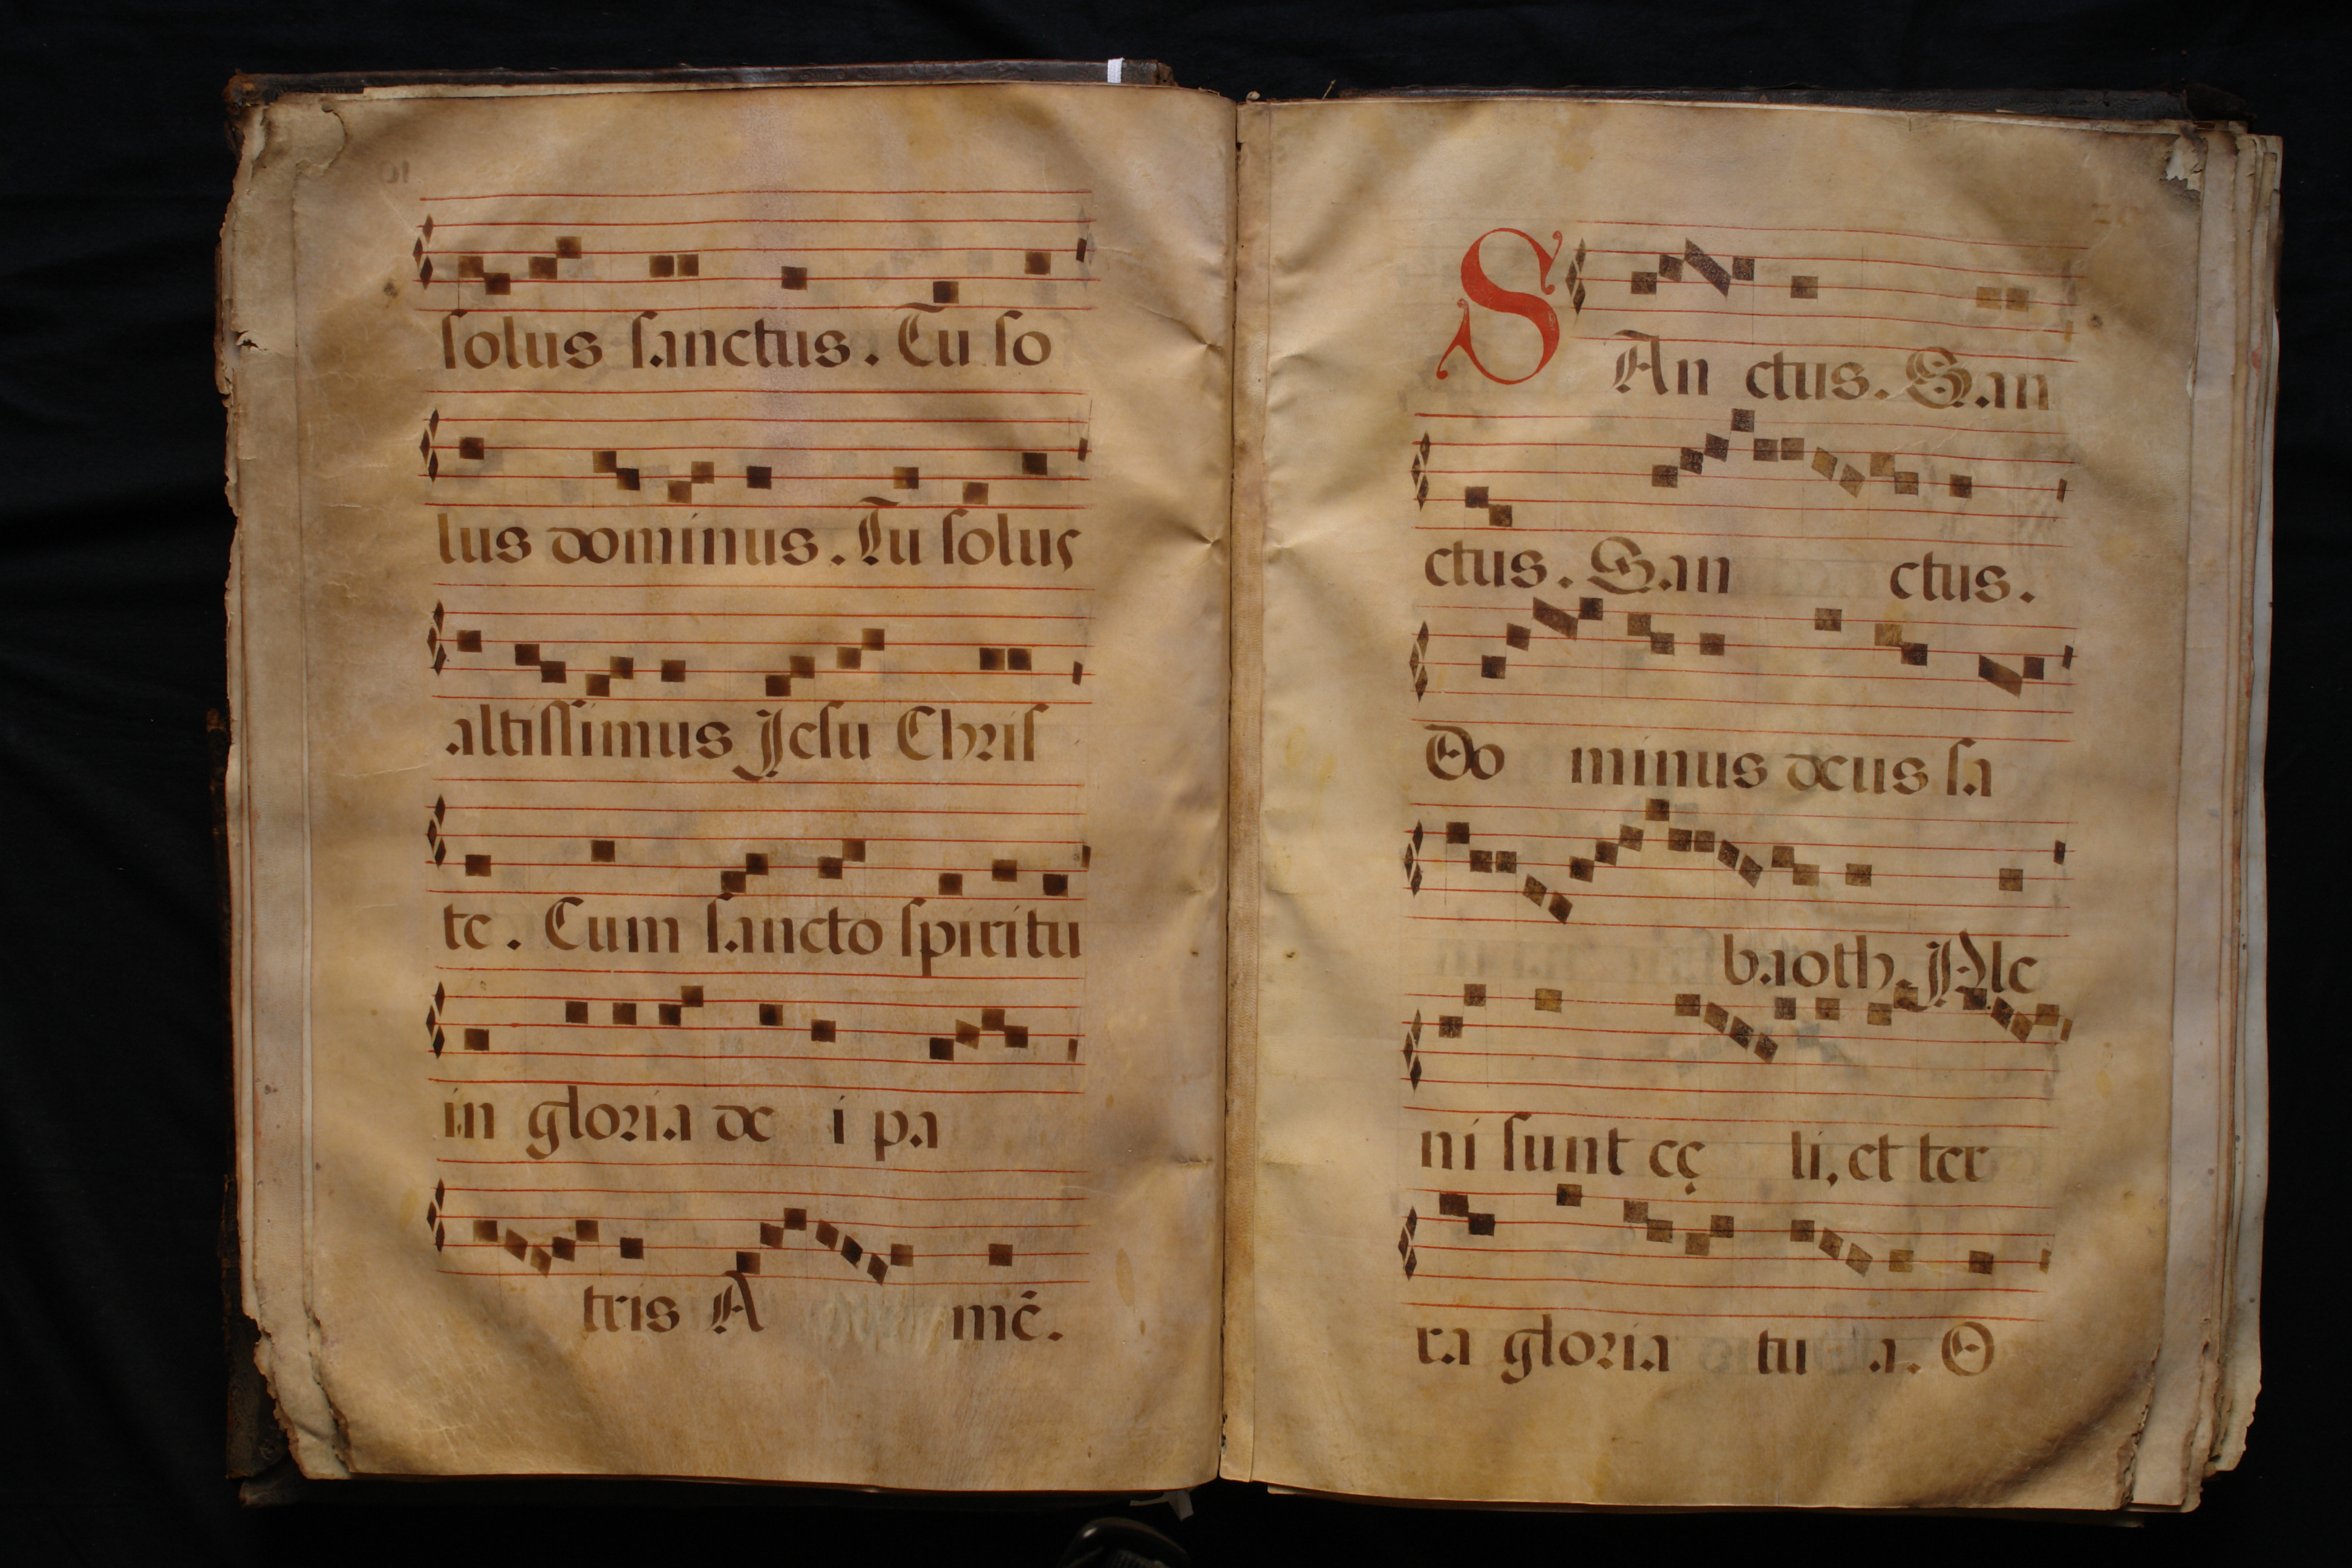 solus sanctus. Tu so
lus dominus. Tu solus
altissimus Jesu Chris
te. Cum sancto spiritu
in gloria de i pa
tris A mē.
SAn ctus. San
ctus. San ctus.
Do minus deus sa
baoth. Ple
ni sunt cę li, et ter
ra gloria tu a. O